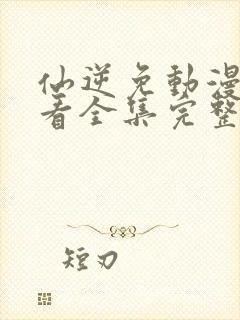 仙逆免動漫
看全集完整
短刃